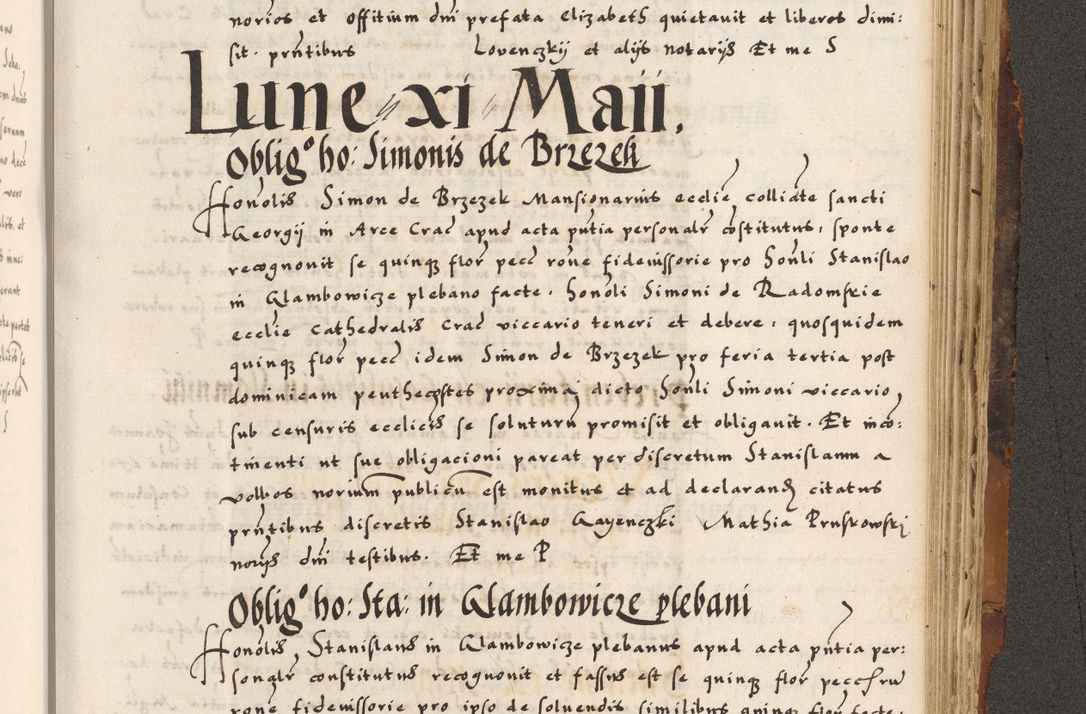 norios et offitium dni prefata Elizabeth quietauit et liberos dimi:
sit. pntibus Lovenczkij et alijs notarijs Et me S
Lune xi Maii,
Oblig° ho: Simonis de Brzezek
Honolis Simon de Brzezek Mansionarius ecclie colliate sancti
Georgij in Arce Crac apud acta pntia personalr costitutus, sponte
recognouit se quinqz flor pecc rone fideiussorie pro honli Stanislao
in Glambowicze plebano facte. honoli Simoni de Radomskie
ecclie Cathedralis Crac viccario teneri et debere, quosquidem
quinqz flor pecc idem Simon de Brzezek pro feria tertia post
dominicam penthecostes proximaj dicto honli Simoni viccario,
sub censuris ecclicis se soluturu promisit et obligauit. Et inco:
tinenti ut sue obligacioni pareat per discretum Stanislaum a
norium publicu est monitus et ad declarand citatus
pntibus discretis Stanislao Gayenczki Mathia Pruskowskj
norijs dni testibus. Et me P
Oblig° ho: Sta: in Glambowicze plebani
Honolis, Stanislaus in Glambowicze plebanus apud acta pntia per:
sonalr constitutus recognouit et fassus est se quinqz flor pecc
rone fideiussorie pro ipso de soluendis similibus quinqz flor facte